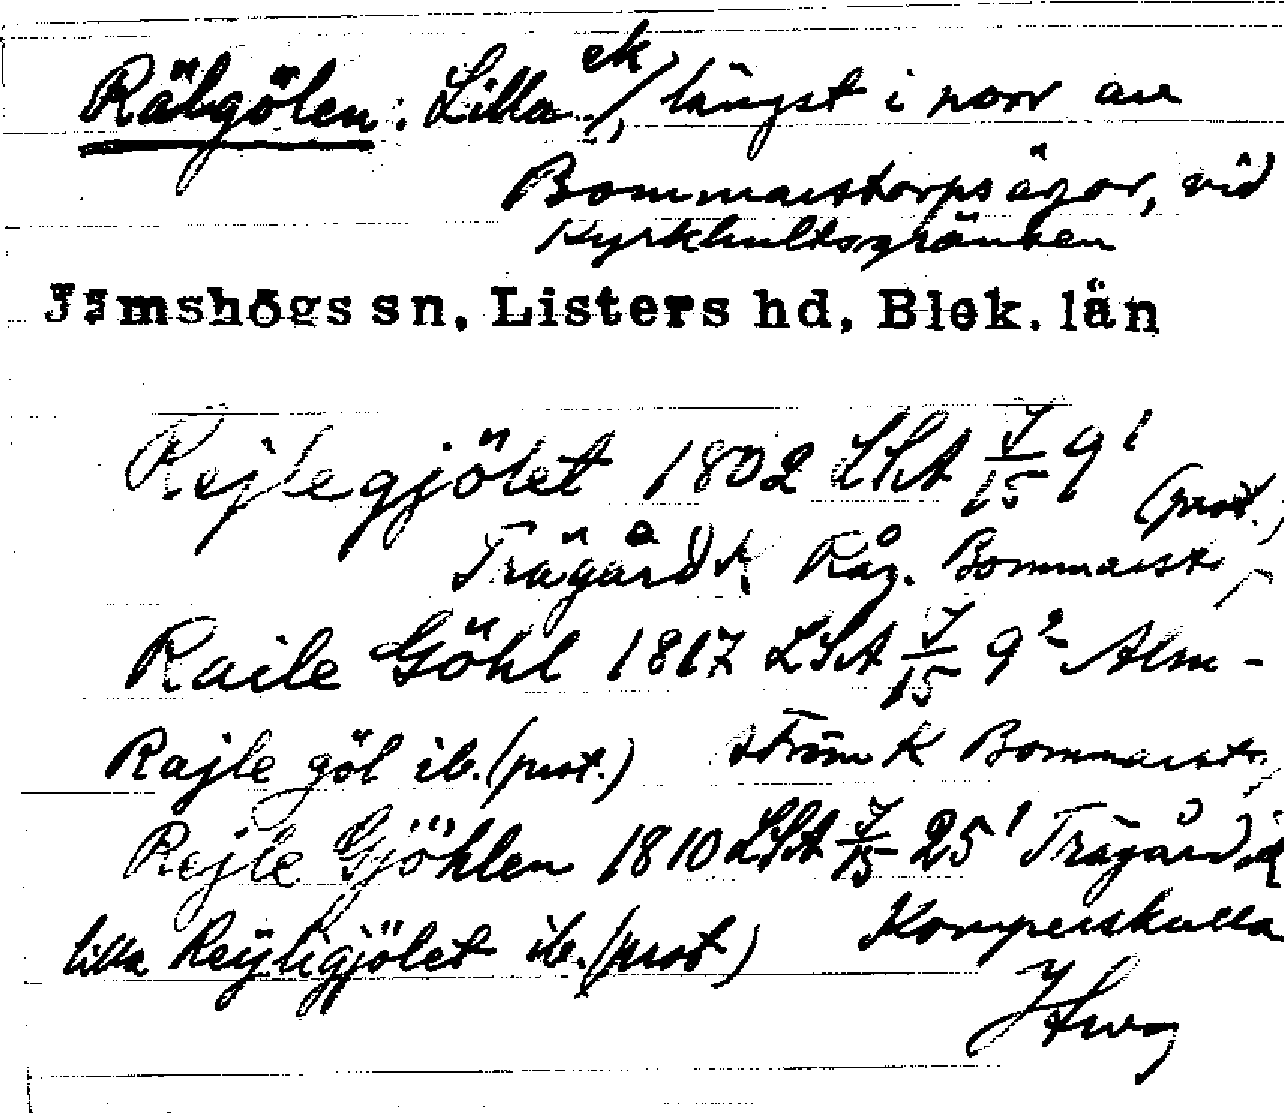 Rälgölen: Lilla ek/, längst i norr av
Bommarstorps ägor, vid
Kyrkhultsgränsen
Jämshögs sn, Listers hd, Blek. län
Rejlegjölet 1802 LSA 7/15 9¹ (prot.,
Trägård K Råg. Bommarst.
Raile Göhl 1817 LSA 7/15 9² Alm-
Rajle göl ib. (prot.) ström K Bommarst.
Rejle Gjöhlen 1810 LSA 7/15 25¹ Trägård K
lilla Reÿligjölet ib. (prot) Komperskulla